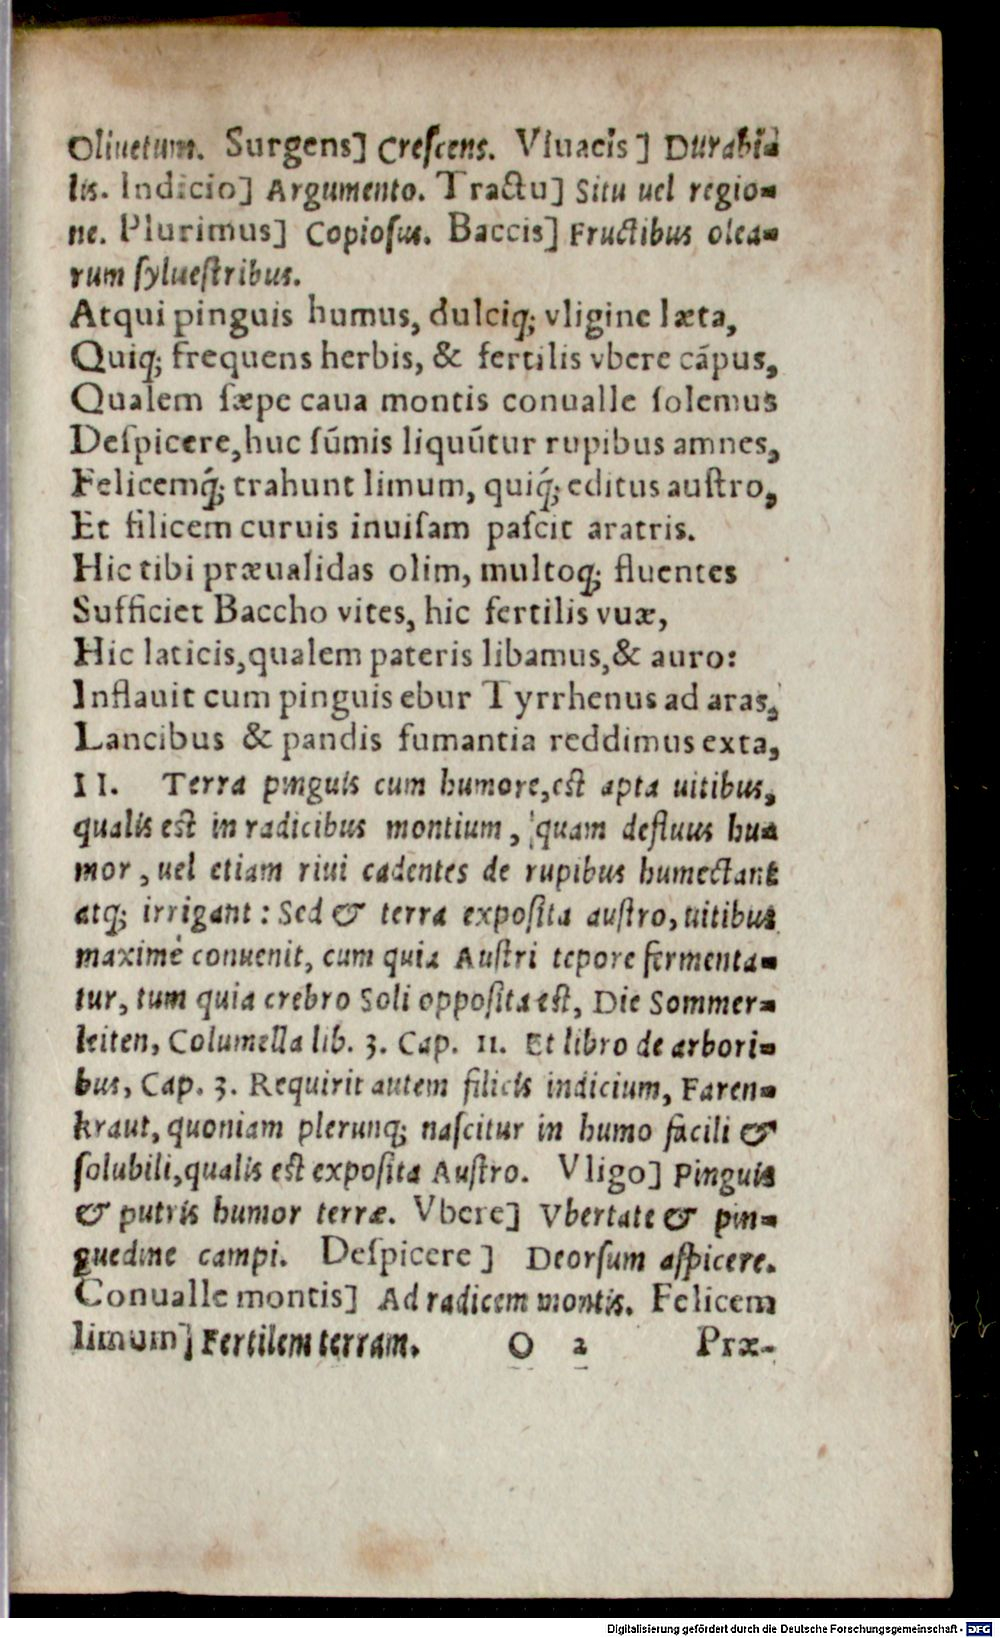 Oliuetum. Surgens] Creſcens. Viuacis] Durabi-
lis. Indicio] Argumento. Tractu] Situ uel regio-
ne. Plurimus] Copioſus. Baccis] Fructibus olea-
rum ſylueſtribus.
Atqui pinguis humus, dulciq; vligine læta,
Quiq; frequens herbis, & fertilis vbere cãpus,
Qualem ſæpe caua montis conualle ſolemus
Deſpicere, huc ſũmis liquũtur rupibus amnes,
Felicemq́; trahunt limum, quiq́; editus auſtro,
Et filicem curuis inuiſam paſcit aratris.
Hic tibi præualidas olim, multoq; fluentes
Sufficiet Baccho vites, hic fertilis vuæ,
Hic laticis, qualem pateris libamus, & auro:
Inflauit cum pinguis ebur Tyrrhenus ad aras,
Lancibus & pandis fumantia reddimus exta,
II. Terra pinguis cum humore, eſt apta uitibus,
qualis eſt in radicibus montium, quam defluus hu-
mor, uel etiam riui cadentes de rupibus humectant
atq; irrigant: Sed & terra expoſita auſtro, uitibus
maximè conuenit, cum quia Auſtri tepore fermenta-
tur, tum quia crebro Soli oppoſita eſt, Die Sommer-
leiten, Columella lib. 3. Cap. 11. Et libro de arbori-
bus, Cap. 3. Requirit autem filicis indicium, Faren-
kraut, quoniam plerunq; naſcitur in humo facili &
ſolubili, qualis eſt expoſita Auſtro. Vligo] Pinguis
& putris humor terræ. Vbere] Vbertate & pin-
guedine campi. Deſpicere] Deorſum aſpicere.
Conualle montis] Ad radicem montis. Felicem
limum] Fertilem terram. O 2 Præ-
Digitalisierung gefördert durch die Deutsche Forschungsgemeinschaft - DFG